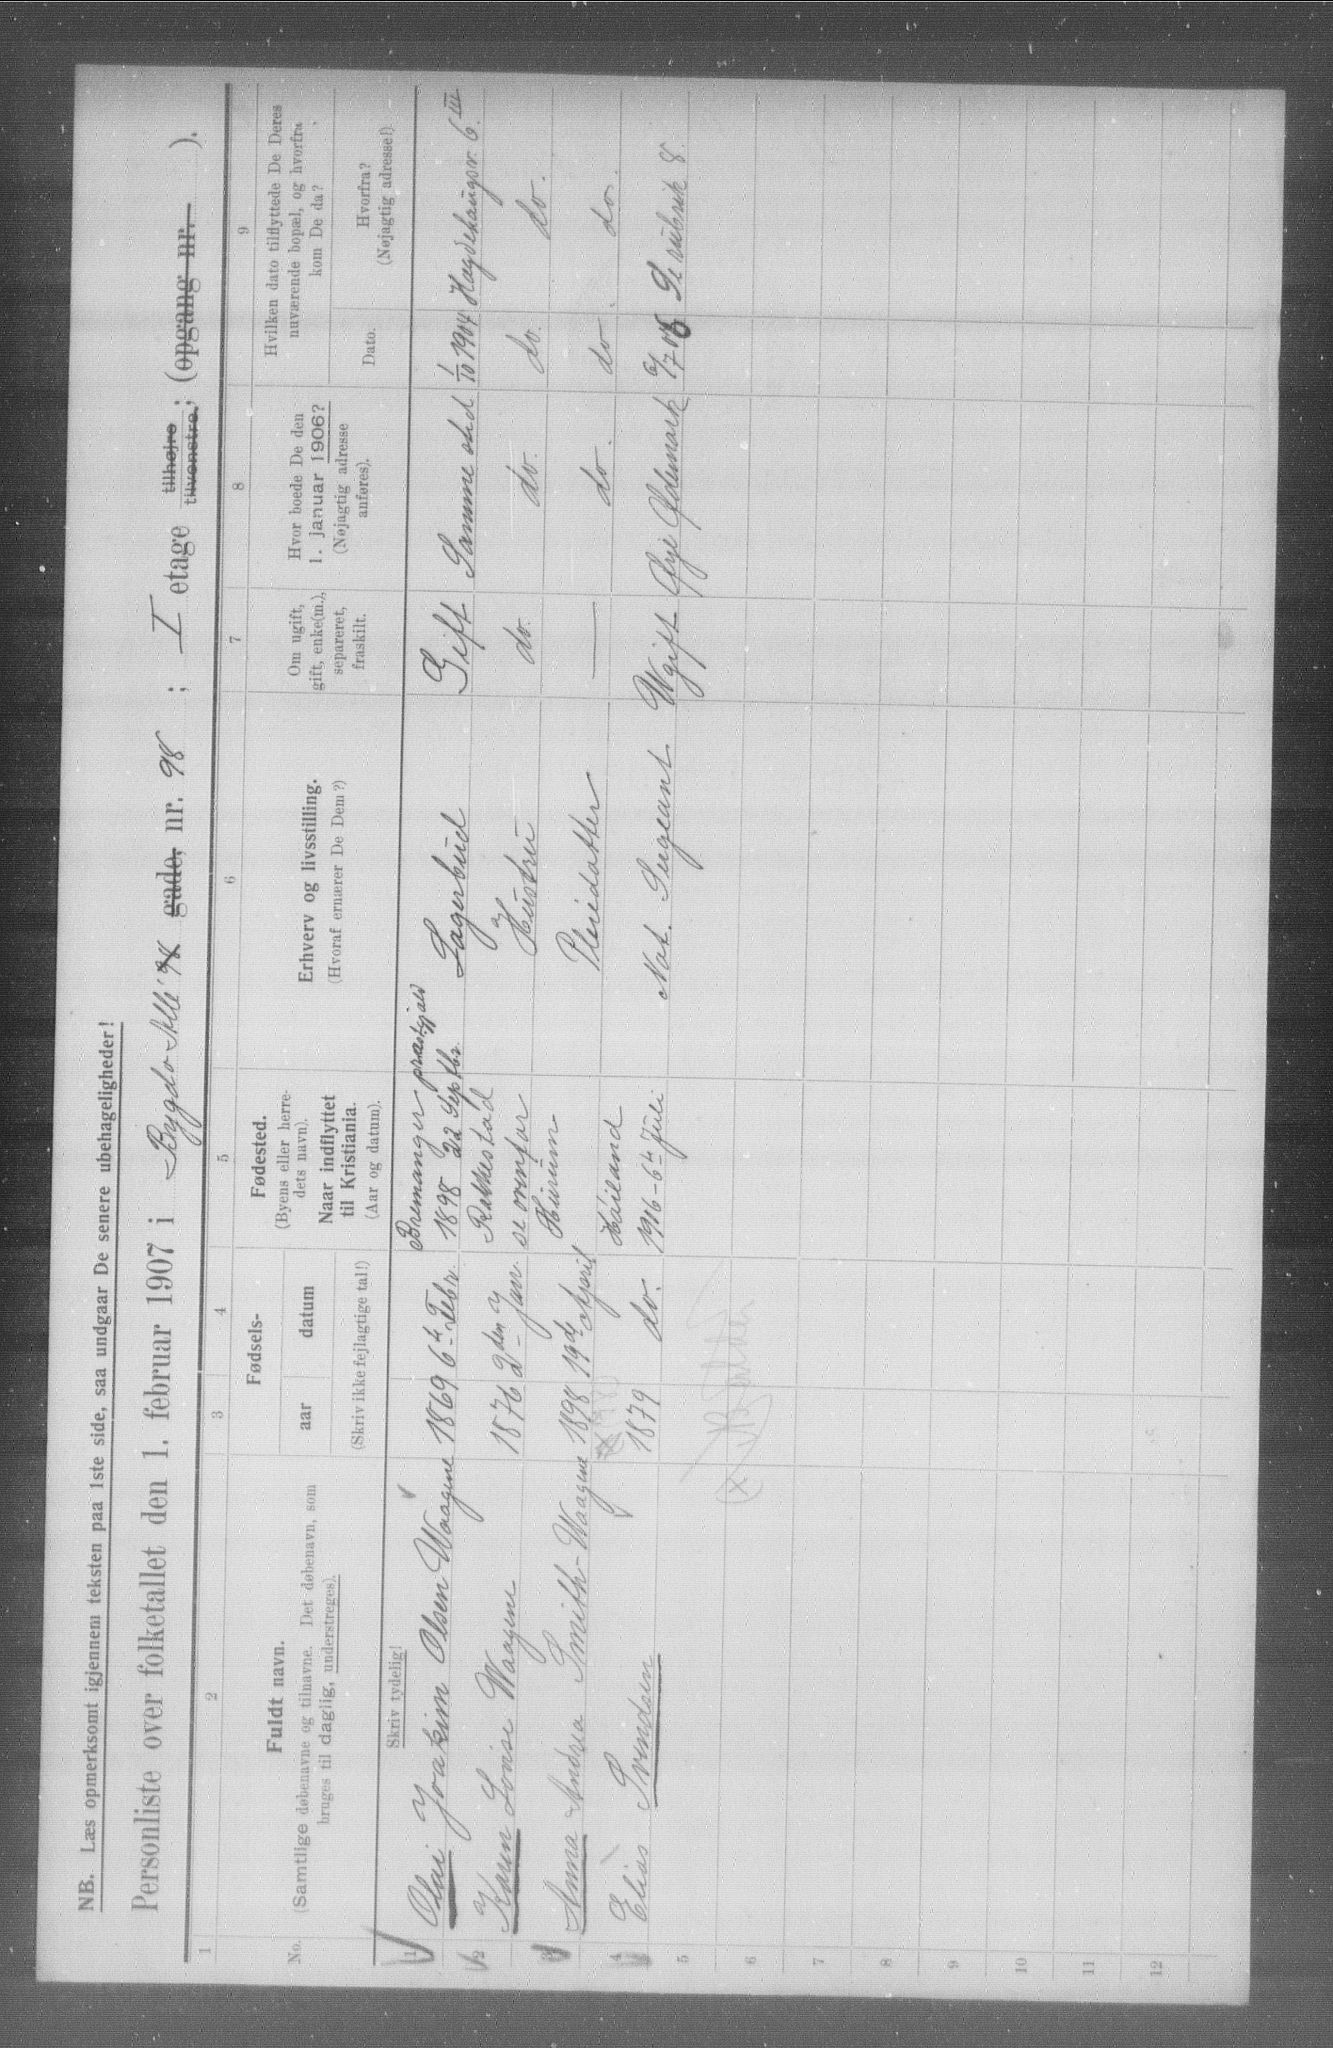 NB. Læs opmerksomt igjennem teksten paa 1ste side, saa undgaar De senere ubehageligheder!
Personliste over folketallet den 1. februar 1907 i Bygdo Allé 98 gade, nr. 98 ; I etage tilhøjre tilvenstre; (opgang nr. ).
1 2 3 4 5 6 7 8 9
No.
Fuldt navn.
(Samtlige døbenavne og tilnavne. Det døbenavn, som
bruges til daglig, understreges).
Fødsels-
aar datum
(Skriv ikke fejlagtige tal!)
Fødested.
(Byens eller herre-
dets navn).
Naar indflyttet
til Kristiania.
(Aar og datum).
Erhverv og livsstilling.
(Hvoraf ernærer De Dem?)
Om ugift,
gift, enke(m.),
separeret,
fraskilt.
Hvor boede De den
1. januar 1906?
(Nøjagtig adresse
anføres).
Hvilken dato tilflyttede De Deres
nuværende bopæl, og hvorfra
kom De da?
Dato.
Hvorfra?
(Nøjagtig adresse!)
Skriv tydelig!
1 Olai Joakim Olsen Waagene 1869 6te Febr. Bremanger præstgjald 1898 22 Septbr. Lagerbud Gift Samme sted 1/10 1904 Hagdehaugsv. 6 III
2 Karen Lovise Waagene 1876 2den Jan. Rakkestad se ovenfor Hustru do. do. do. do.
3 Anna Andrea Smith-Waagene 1898 19de April Hurum Pleiedatter — do. do. do.
4 Elias Svendsen 1879 do. 1906-6te Juli Nat. Sergeant Ugift 6/7 06 Se rubrik 8.
5
6
7
8
9
10
11
12